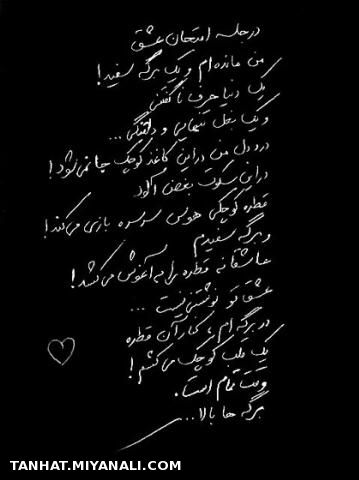 در جلسه امتحان عشق
من مانده ام و یک برگه سفید!
یک دنیا حرف ناگفتنی
و یک بغل تنهایی و دلتنگی ...
درد دل من در این کاغذ کوچک جا نمی شود!
در این سکوت بغض آلود
قطره کوچکی هوس سرسره بازی می کند!
و برگه سفیدم
عاشقانه قطره را به آغوش می کشد!
عشق تو نوشتنی نیست ...
در برگه ام، کنار آن قطره
یک قلب کوچک می کشم!
وقت تمام است.
برگه ها بالا ...
TANHAT.MIYANALI.COM